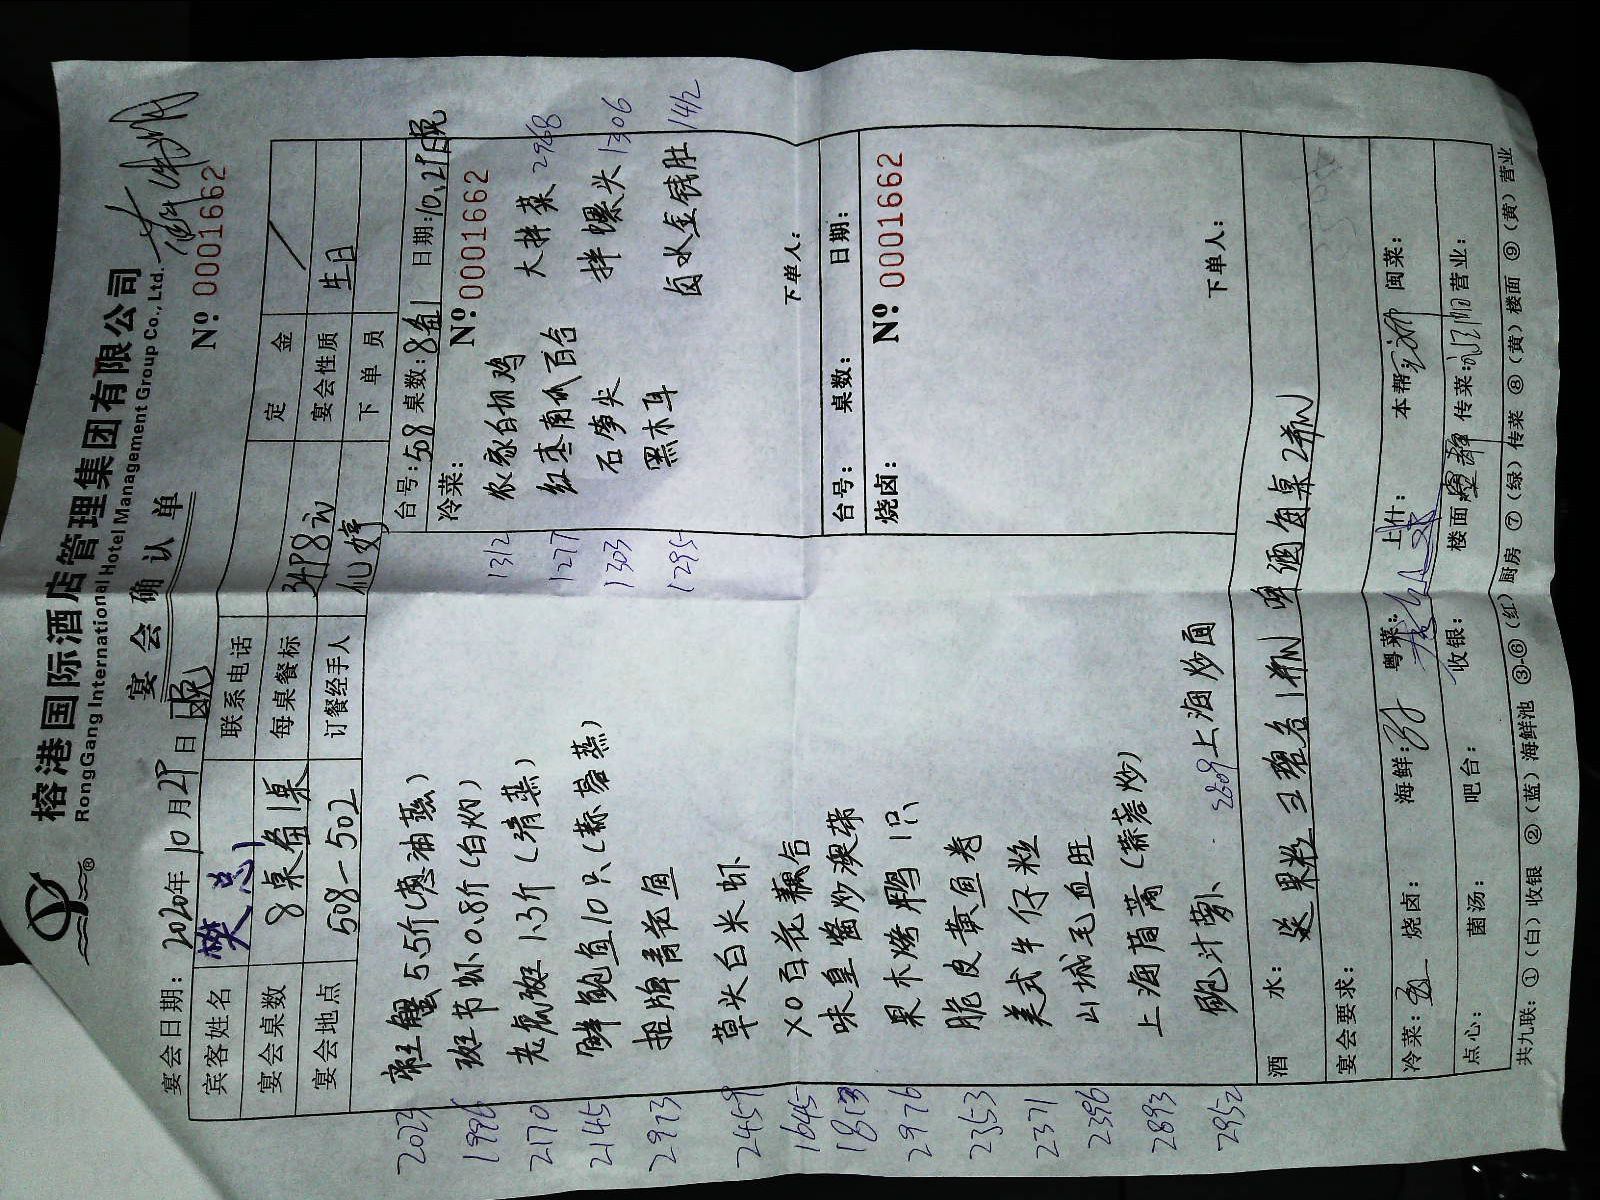 榕港国际酒店管理集团有限公司
RongGang International Hotel Management Group Co., Ltd.
宴会确认单
Nº: 0001662
宴会日期: 2020年10月29日 晚
宾客姓名 樊总 联系电话 定金 /
宴会桌数 8桌备1桌 每桌餐标 宴会性质 生日
宴会地点 508-502 订餐经手人 仙婷 下单员
2023 帝王蟹5.5斤(葱油蒸)
1996 斑节虾0.8斤(白灼)
2170 老虎斑1.3斤(清蒸)
2145 鲜鲍鱼10只(蒜蓉蒸)
2973 招牌青花鱼
2459 草头白米虾
1645 XO百花藕合
1813 味皇酱炒澳带
2976 果木烤鸭1只
2353 脆皮黄鱼卷
2371 美式牛仔粒
2396 山城毛血旺
2893 上海茼蒿(蒜蓉炒)
2952 鲍汁萝卜 2809 上海炒面
台号: 508 桌数: 8备1 日期: 10.29晚
冷菜: Nº: 0001662
1312 农家白切鸡 大拌菜 2968
1277 红枣南瓜百合 拌螺头 1306
1303 石笋尖 卤水金钱肚 1412
1295 黑木耳
下单人:
台号: 桌数: 日期:
烧卤: Nº: 0001662
下单人:
酒水: 送果粒 王老吉1瓶 啤酒每桌2瓶
宴会要求:
冷菜: 烧卤: 海鲜: 粤菜: 上什: 本帮: 闽菜:
点心: 菌汤: 吧台: 收银: 楼面: 传菜: 营业:
共九联: ①(白)收银 ②(蓝)海鲜池 ③-⑥(红)厨房 ⑦(绿)传菜 ⑧(黄)楼面 ⑨(黄)营业